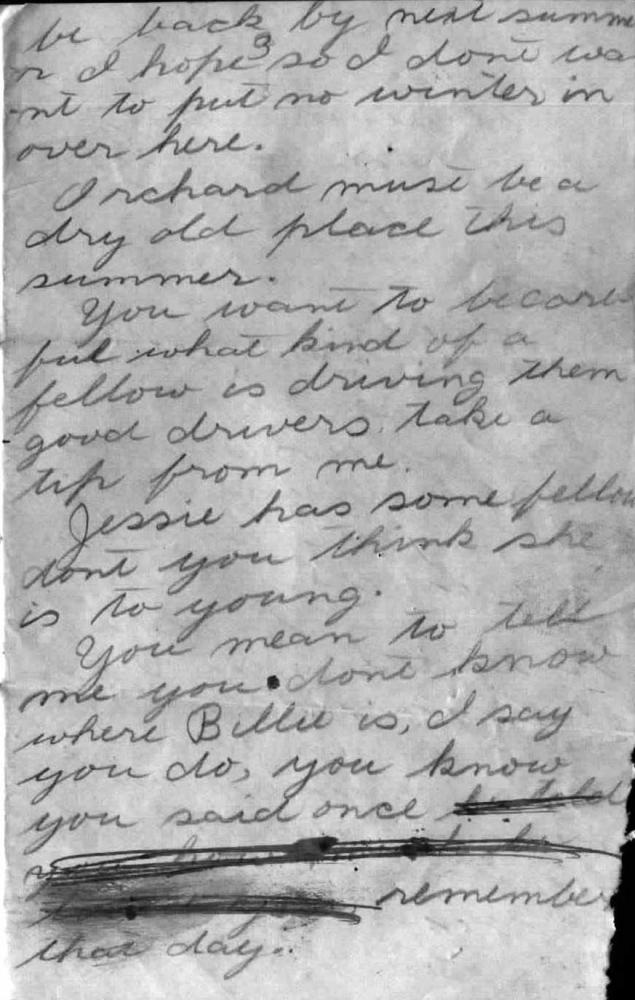 be back by next summe
r I hope so I dont wa
nt to put no winter in
over here.
3
Orchard must be a
dry old place this
summer.
You want to becare
ful what kind of a
fellow is driving them
good drivers, take a
tip from me.
Jessie has some fellow
dont you think she
is to young.
You mean to tell
me you dont know
where Billie is, I say
you do, you know
you said once he told
you how
remember
that day.